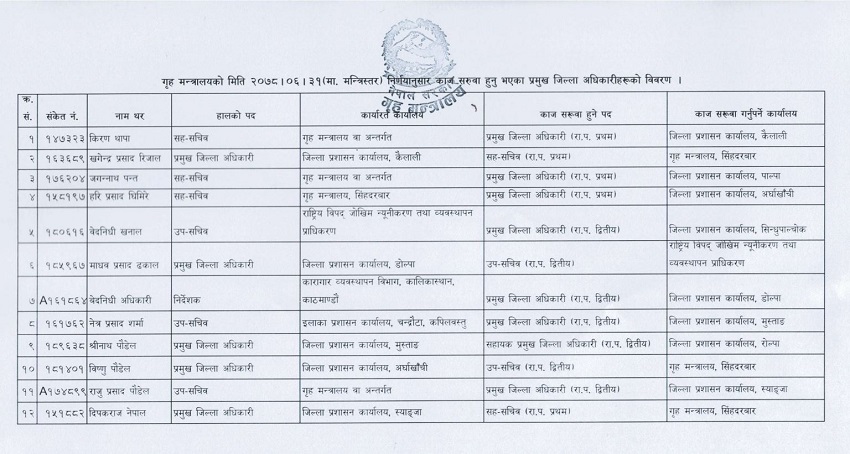 गृह मन्त्रालयको मिति २०७८।०६।३१(मा. मन्त्रिस्तर) निर्णयानुसार काज सरुवा हुनु भएका प्रमुख जिल्ला अधिकारीहरूको विवरण ।
नेपाल सरकार
गृह मन्त्रालय
क्र. सं. संकेत नं. नाम थर हालको पद कार्यारत कार्यालय काज सरूवा हुने पद काज सरूवा गर्नुपर्ने कार्यालय
१ १४७३२३ किरण थापा सह-सचिव गृह मन्त्रालय वा अन्तर्गत प्रमुख जिल्ला अधिकारी (रा.प. प्रथम) जिल्ला प्रशासन कार्यालय, कैलाली
२ १६३६८९ खगेन्द्र प्रसाद रिजाल प्रमुख जिल्ला अधिकारी जिल्ला प्रशासन कार्यालय, कैलाली सह-सचिव (रा.प. प्रथम) गृह मन्त्रालय, सिंहदरबार
३ १७६२०४ जगन्नाथ पन्त सह-सचिव गृह मन्त्रालय वा अन्तर्गत प्रमुख जिल्ला अधिकारी (रा.प. प्रथम) जिल्ला प्रशासन कार्यालय, पाल्पा
४ १५८१९७ हरि प्रसाद घिमिरे सह-सचिव गृह मन्त्रालय, सिंहदरबार प्रमुख जिल्ला अधिकारी (रा.प. प्रथम) जिल्ला प्रशासन कार्यालय, अर्घाखाँची
५ १८०६१६ वेदनिधी खनाल उप-सचिव राष्ट्रिय विपद् जोखिम न्यूनीकरण तथा व्यवस्थापन प्राधिकरण प्रमुख जिल्ला अधिकारी (रा.प. द्वितीय) जिल्ला प्रशासन कार्यालय, सिन्धुपाल्चोक
६ १८५९६७ माधव प्रसाद ढकाल प्रमुख जिल्ला अधिकारी जिल्ला प्रशासन कार्यालय, डोल्पा उप-सचिव (रा.प. द्वितीय) राष्ट्रिय विपद् जोखिम न्यूनीकरण तथा व्यवस्थापन प्राधिकरण
७ A१६१८६४ वेदनिधी अधिकारी निर्देशक कारागार व्यवस्थापन विभाग, कालिकास्थान, काठमाण्डौ प्रमुख जिल्ला अधिकारी (रा.प. द्वितीय) जिल्ला प्रशासन कार्यालय, डोल्पा
८ १६१७६२ नेत्र प्रसाद शर्मा उप-सचिव इलाका प्रशासन कार्यालय, चन्द्रौटा, कपिलवस्तु प्रमुख जिल्ला अधिकारी (रा.प. द्वितीय) जिल्ला प्रशासन कार्यालय, मुस्ताङ
९ १८९६३८ श्रीनाथ पौडेल प्रमुख जिल्ला अधिकारी जिल्ला प्रशासन कार्यालय, मुस्ताङ सहायक प्रमुख जिल्ला अधिकारी (रा.प. द्वितीय) जिल्ला प्रशासन कार्यालय, रोल्पा
१० १८९४०१ विष्णु पौडेल प्रमुख जिल्ला अधिकारी जिल्ला प्रशासन कार्यालय, अर्घाखाँची उप-सचिव (रा.प. द्वितीय) गृह मन्त्रालय, सिंहदरबार
११ A१७४८९९ राजु प्रसाद पौडेल उप-सचिव गृह मन्त्रालय वा अन्तर्गत प्रमुख जिल्ला अधिकारी (रा.प. द्वितीय) जिल्ला प्रशासन कार्यालय, स्याङ्जा
१२ १५१८८२ दिपकराज नेपाल प्रमुख जिल्ला अधिकारी जिल्ला प्रशासन कार्यालय, स्याङ्जा सह-सचिव (रा.प. प्रथम) गृह मन्त्रालय, सिंहदरबार